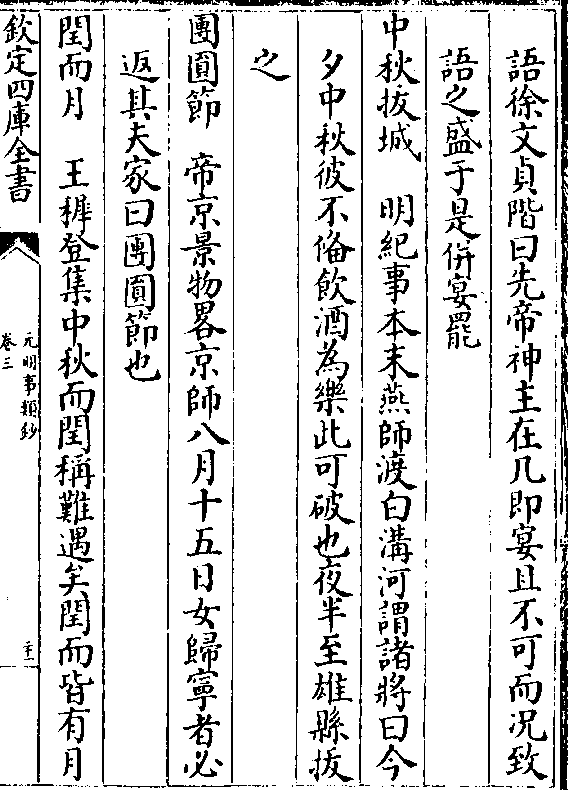 語徐文貞階曰先帝神主在几即宴且不可而况致
語之盛于是併宴罷
中秋拔城　明紀事本末燕師渡白溝河謂諸將曰今
夕中秋彼不備飲酒為樂此可破也夜半至雄縣拔
之
團圓節　帝京景物畧京師八月十五日女歸寧者必
返其夫家曰團圓節也
閏而月　王穉登集中秋而閏稱難遇矣閏而皆有月
欽定四庫全書
元明事類鈔
卷三